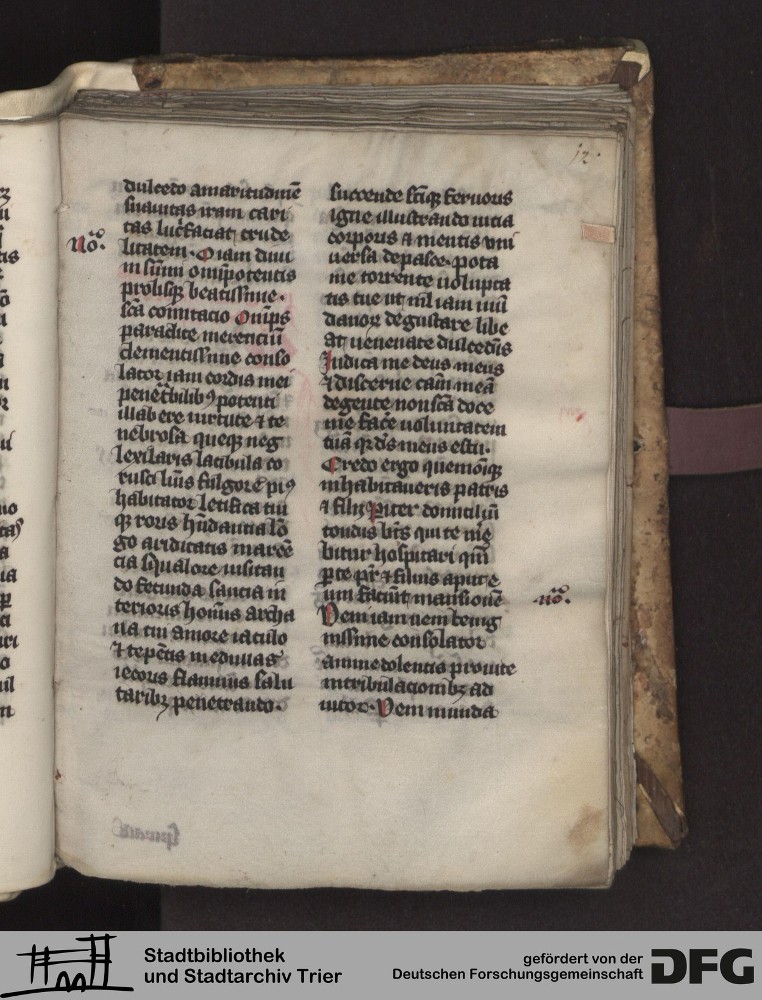 12.
dulcedo amaritudinē
suauitas iram cari
tas lucēfaciat crude
litatem. O iam diui
ni sūmi om̄ipotentis
prolisqꝫ beatissime.
scā cōmitacio om̄ps
paraclite merenciū
clementissime conso
lator iam cordis mei
penet̄bilibꝰ potenti
illabere uirtute ⁊ te
nebrosa queqꝫ neg
lexilaris latibula co
rusci lūis fulgore piꝰ
habitator letifica tu
qꝫ roris hūdantia lō
go ariditatis marcē
cia squalore uisitan
do fecunda sancia in
terioris hoīnis archa
na tui amore iaculo
⁊ tepētis medullas
iecoris flāmiuis salu
taribꝫ penetrando.
succende scīqꝫ feruoris
igne illustrando intia
corporis ⁊ mentis vni
uersa depasce. pota
me torrente uolupta
tis tue ut nil iam mū
danoꝝ degustare libe
at uenenate dulcedīs
Iudica me deus meus
⁊ discerne cām meā
de gente non scā doce
me face uoluntatem
tuā qꝛ ds̄ meus es tu.
Credo ergo quemcūqꝫ
inhabitaueris patris
⁊ filij piter domiciliū
condis bt̄s qui te me
bitur hospitari qm̄
ꝑ te pr̄ ⁊ filius aput e
um faciūt mansionē
Veni iam veni benig
nissime consolator
anime dolentis prouite
in tribulacionibꝫ ad
iutor. Veni munda
Stadtbibliothek
und Stadtarchiv Trier
gefördert von der
Deutschen Forschungsgemeinschaft
DFG